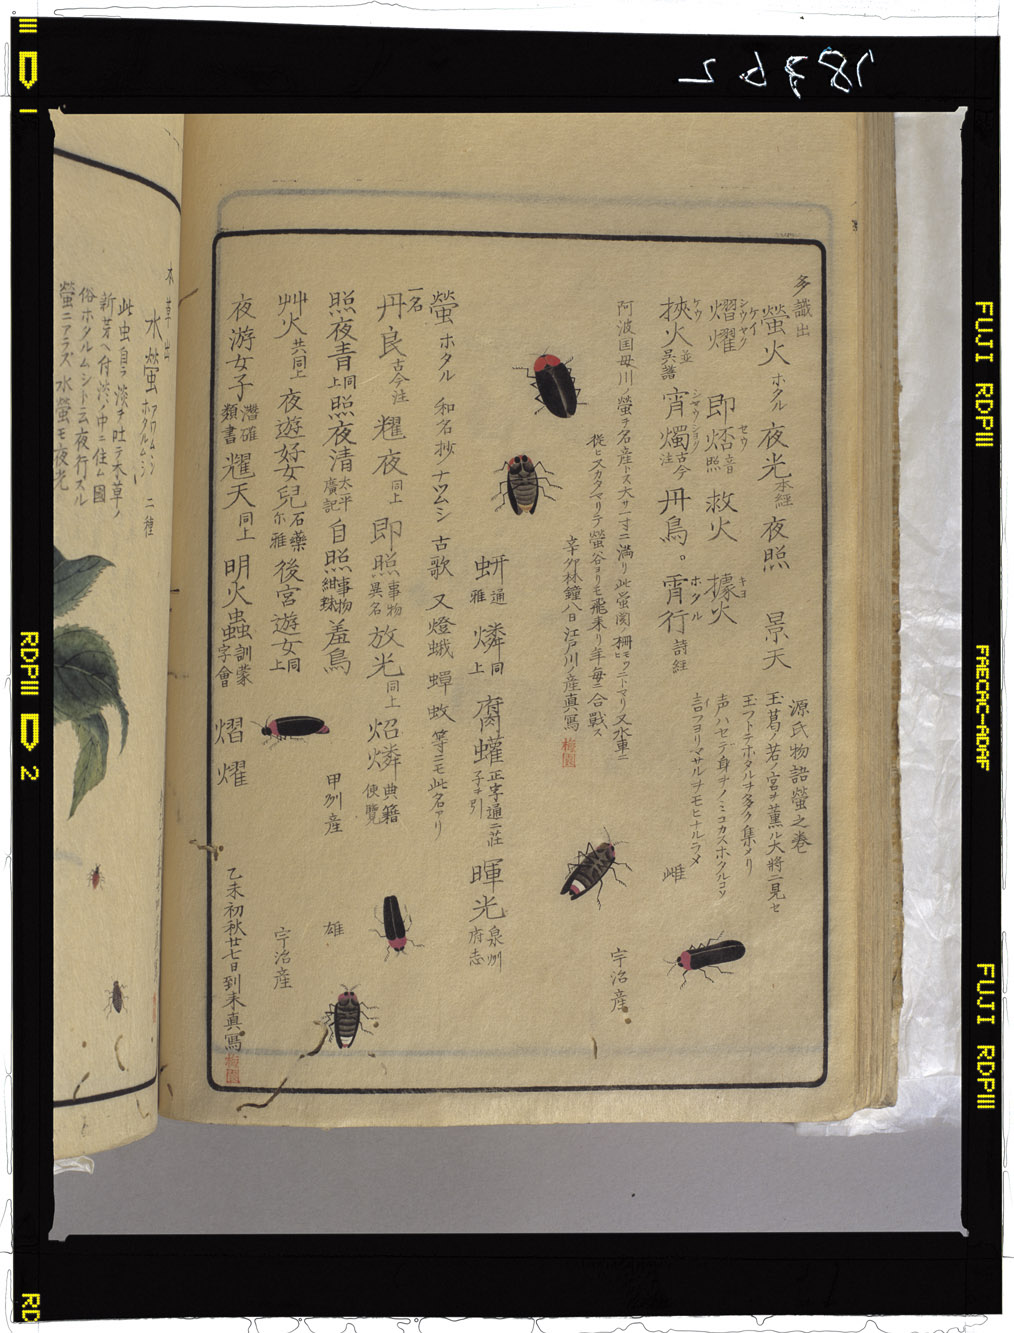 多識出
螢火 ホタル 夜光 本経 夜照 景天
熠燿 シウヤク ケイ 即炤 セウ 音照 救火 據火 キヨ
挾火 ケウ 並呉譜 宵燭 シヤウシヨク 古今注 丹鳥。宵行 ホタル 詩経
源氏物語螢之巻
玉葛ノ若ノ宮ヲ薫ル大將ニ見セ
玉フトテホタルヲ多ク集メリ
声ハセデ身ヲノミコカスホタルコソ
言フヨリマサルヲモヒナルラメ
雌
宇治産
阿波国母川ノ螢ヲ名産トス大サ一寸ニ満リ此螢関柵モワニトマリ又水車ニ
従ヒスカタマリテ螢谷ヨリモ飛来リ年毎ニ合戰ス
辛卯林鐘八日江戸川ノ産真寫 梅園
蚈 通雅 燐 同上 腐蠸 正字通ニ荘子ヲ引 暉光 泉州府志
螢 ホタル 和名抄ノナツムシ 古歌 又燈蛾 蟬 蚊 等ニモ此名アリ
一名
丹良 古今注 燿夜 同上 即照 事物異名 放光 同上 炤燐 典籍便覽
照夜青 同上 照夜清 太平廣記 自照 事物紺珠 羞鳥 甲州産
雄
艸火 共同上 夜遊好女兒 石藥尓雅 後宮遊女 同上
宇治産
夜游女子 潛確類書 燿天 同上 明火蟲 訓蒙字會 熠燿
乙未初秋廿七日到来真寫 梅園
本草出
水螢 アワムシ ホタルムシ 二種
此虫自ラ淡ヲ吐テ木草ノ
新芽ヘ付淡ノ中ニ住ム国
俗ホタルムシト云夜行スル
螢ニアラズ水螢モ夜光
78762
FUJI RDPIII
FAECAC-ADAF
FUJI RDPIII
RDPIII 2
RD